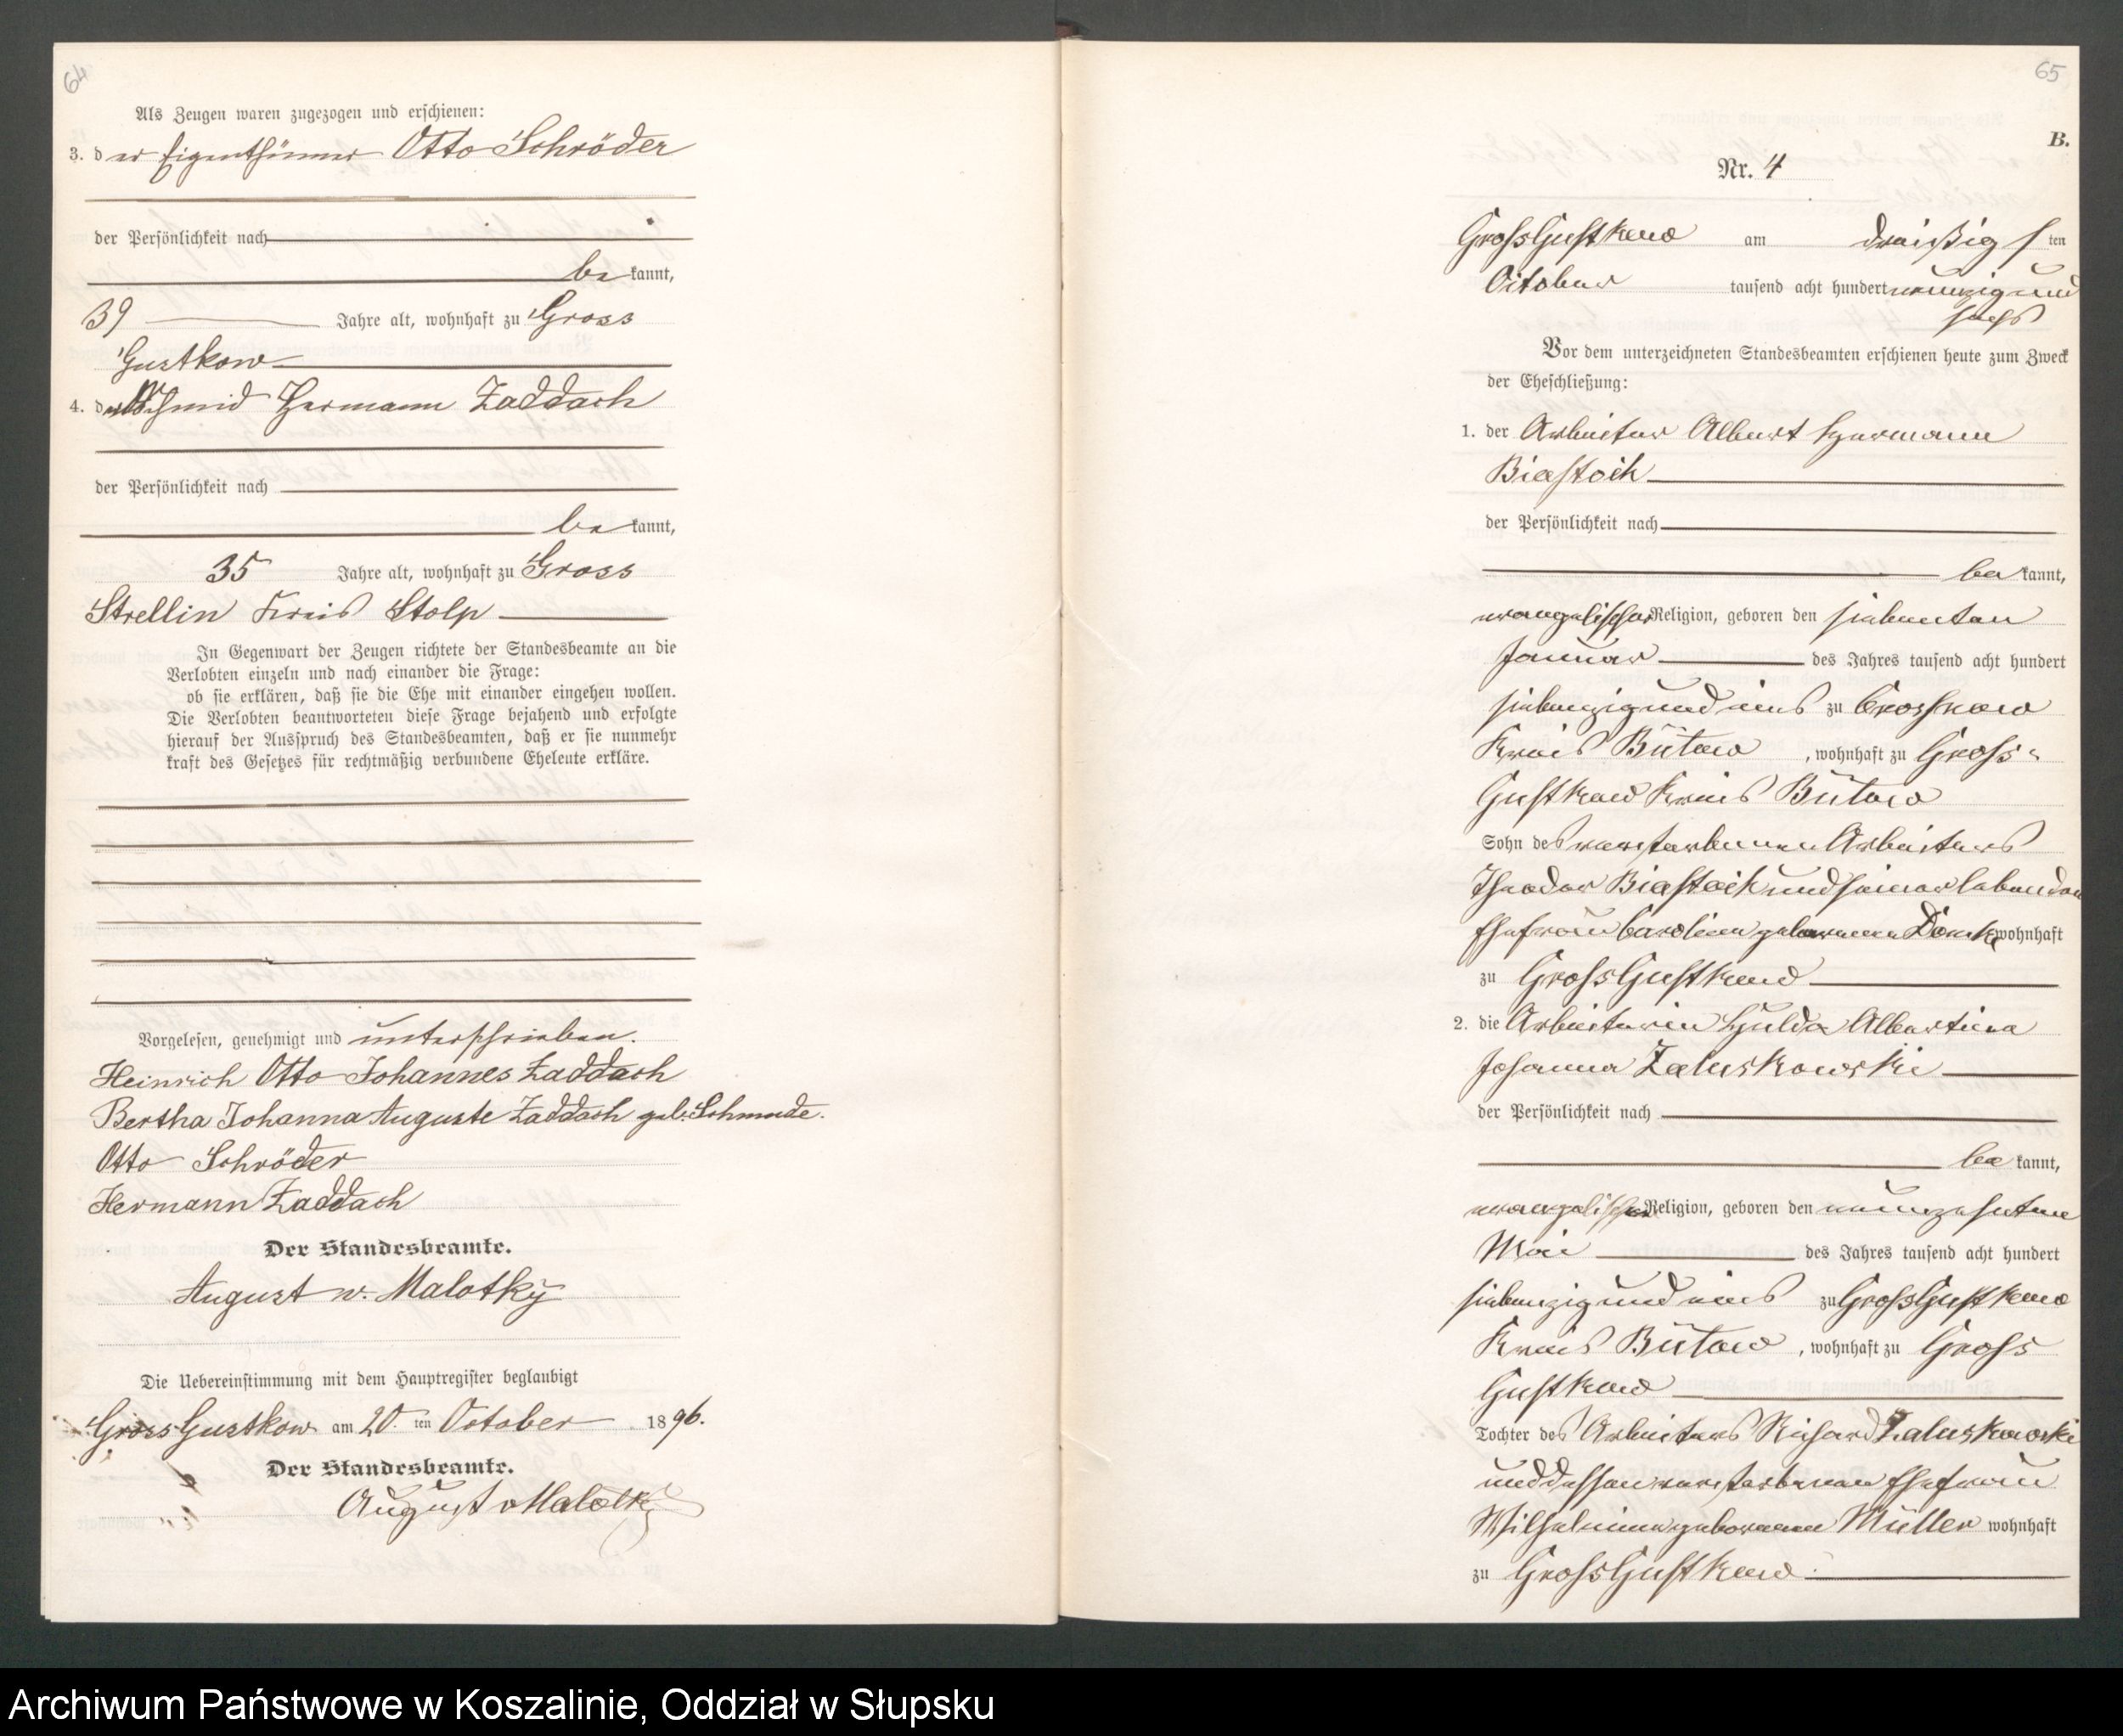 64
Als Zeugen waren zugezogen und erschienen:
3. der Eigenthümer Otto Schröder
der Persönlichkeit nach
bekannt,
39 Jahre alt, wohnhaft zu Gross
Gustkow
4. der Schmid Hermann Zaddach
der Persönlichkeit nach
bekannt,
35 Jahre alt, wohnhaft zu Gross
Strellin Kreis Stolp
In Gegenwart der Zeugen richtete der Standesbeamte an die
Verlobten einzeln und nach einander die Frage:
ob sie erklären, daß sie die Ehe mit einander eingehen wollen.
Die Verlobten beantworteten diese Frage bejahend und erfolgte
hierauf der Ausspruch des Standesbeamten, daß er sie nunmehr
kraft des Gesetzes für rechtmäßig verbundene Eheleute erkläre.
Vorgelesen, genehmigt und unterschrieben.
Heinrich Otto Johannes Zaddach
Bertha Johanna Auguste Zaddach geb. Schmude.
Otto Schröder
Hermann Zaddach
Der Standesbeamte.
August v. Malotky
Die Uebereinstimmung mit dem Hauptregister beglaubigt
Gross Gustkow am 20. ten October 1896.
Der Standesbeamte.
August v Malotky
65
B.
Nr. 4
Gross Gustkow am dreißigsten
October tausend acht hundert neunzig und
sechs
Vor dem unterzeichneten Standesbeamten erschienen heute zum Zweck
der Eheschließung:
1. der Arbeiter Albert Hermann
Biastock
der Persönlichkeit nach
bekannt,
evangelischer Religion, geboren den siebenten
Januar des Jahres tausend acht hundert
siebenzig und eins zu
Kreis Bütow, wohnhaft zu Gross-
Gustkow Kreis Bütow
Sohn des verstorbenen Arbeiters
Theodor Biastock und seiner lebenden
Ehefrau Caroline geborenen wohnhaft
zu Gross Gustkow
2. die Arbeiterin Hulda Albertine
Johanna Zaluskowski
der Persönlichkeit nach
bekannt,
evangelischer Religion, geboren den neunzehnten
Mai des Jahres tausend acht hundert
siebenzig und eins zu Gross Gustkow
Kreis Bütow, wohnhaft zu Gross
Gustkow
Tochter des Arbeiters Richard Zaluskowski
und dessen verstorbenen Ehefrau
Wilhelmine geborenen Müller wohnhaft
zu Gross Gustkow.
Archiwum Państwowe w Koszalinie, Oddział w Słupsku